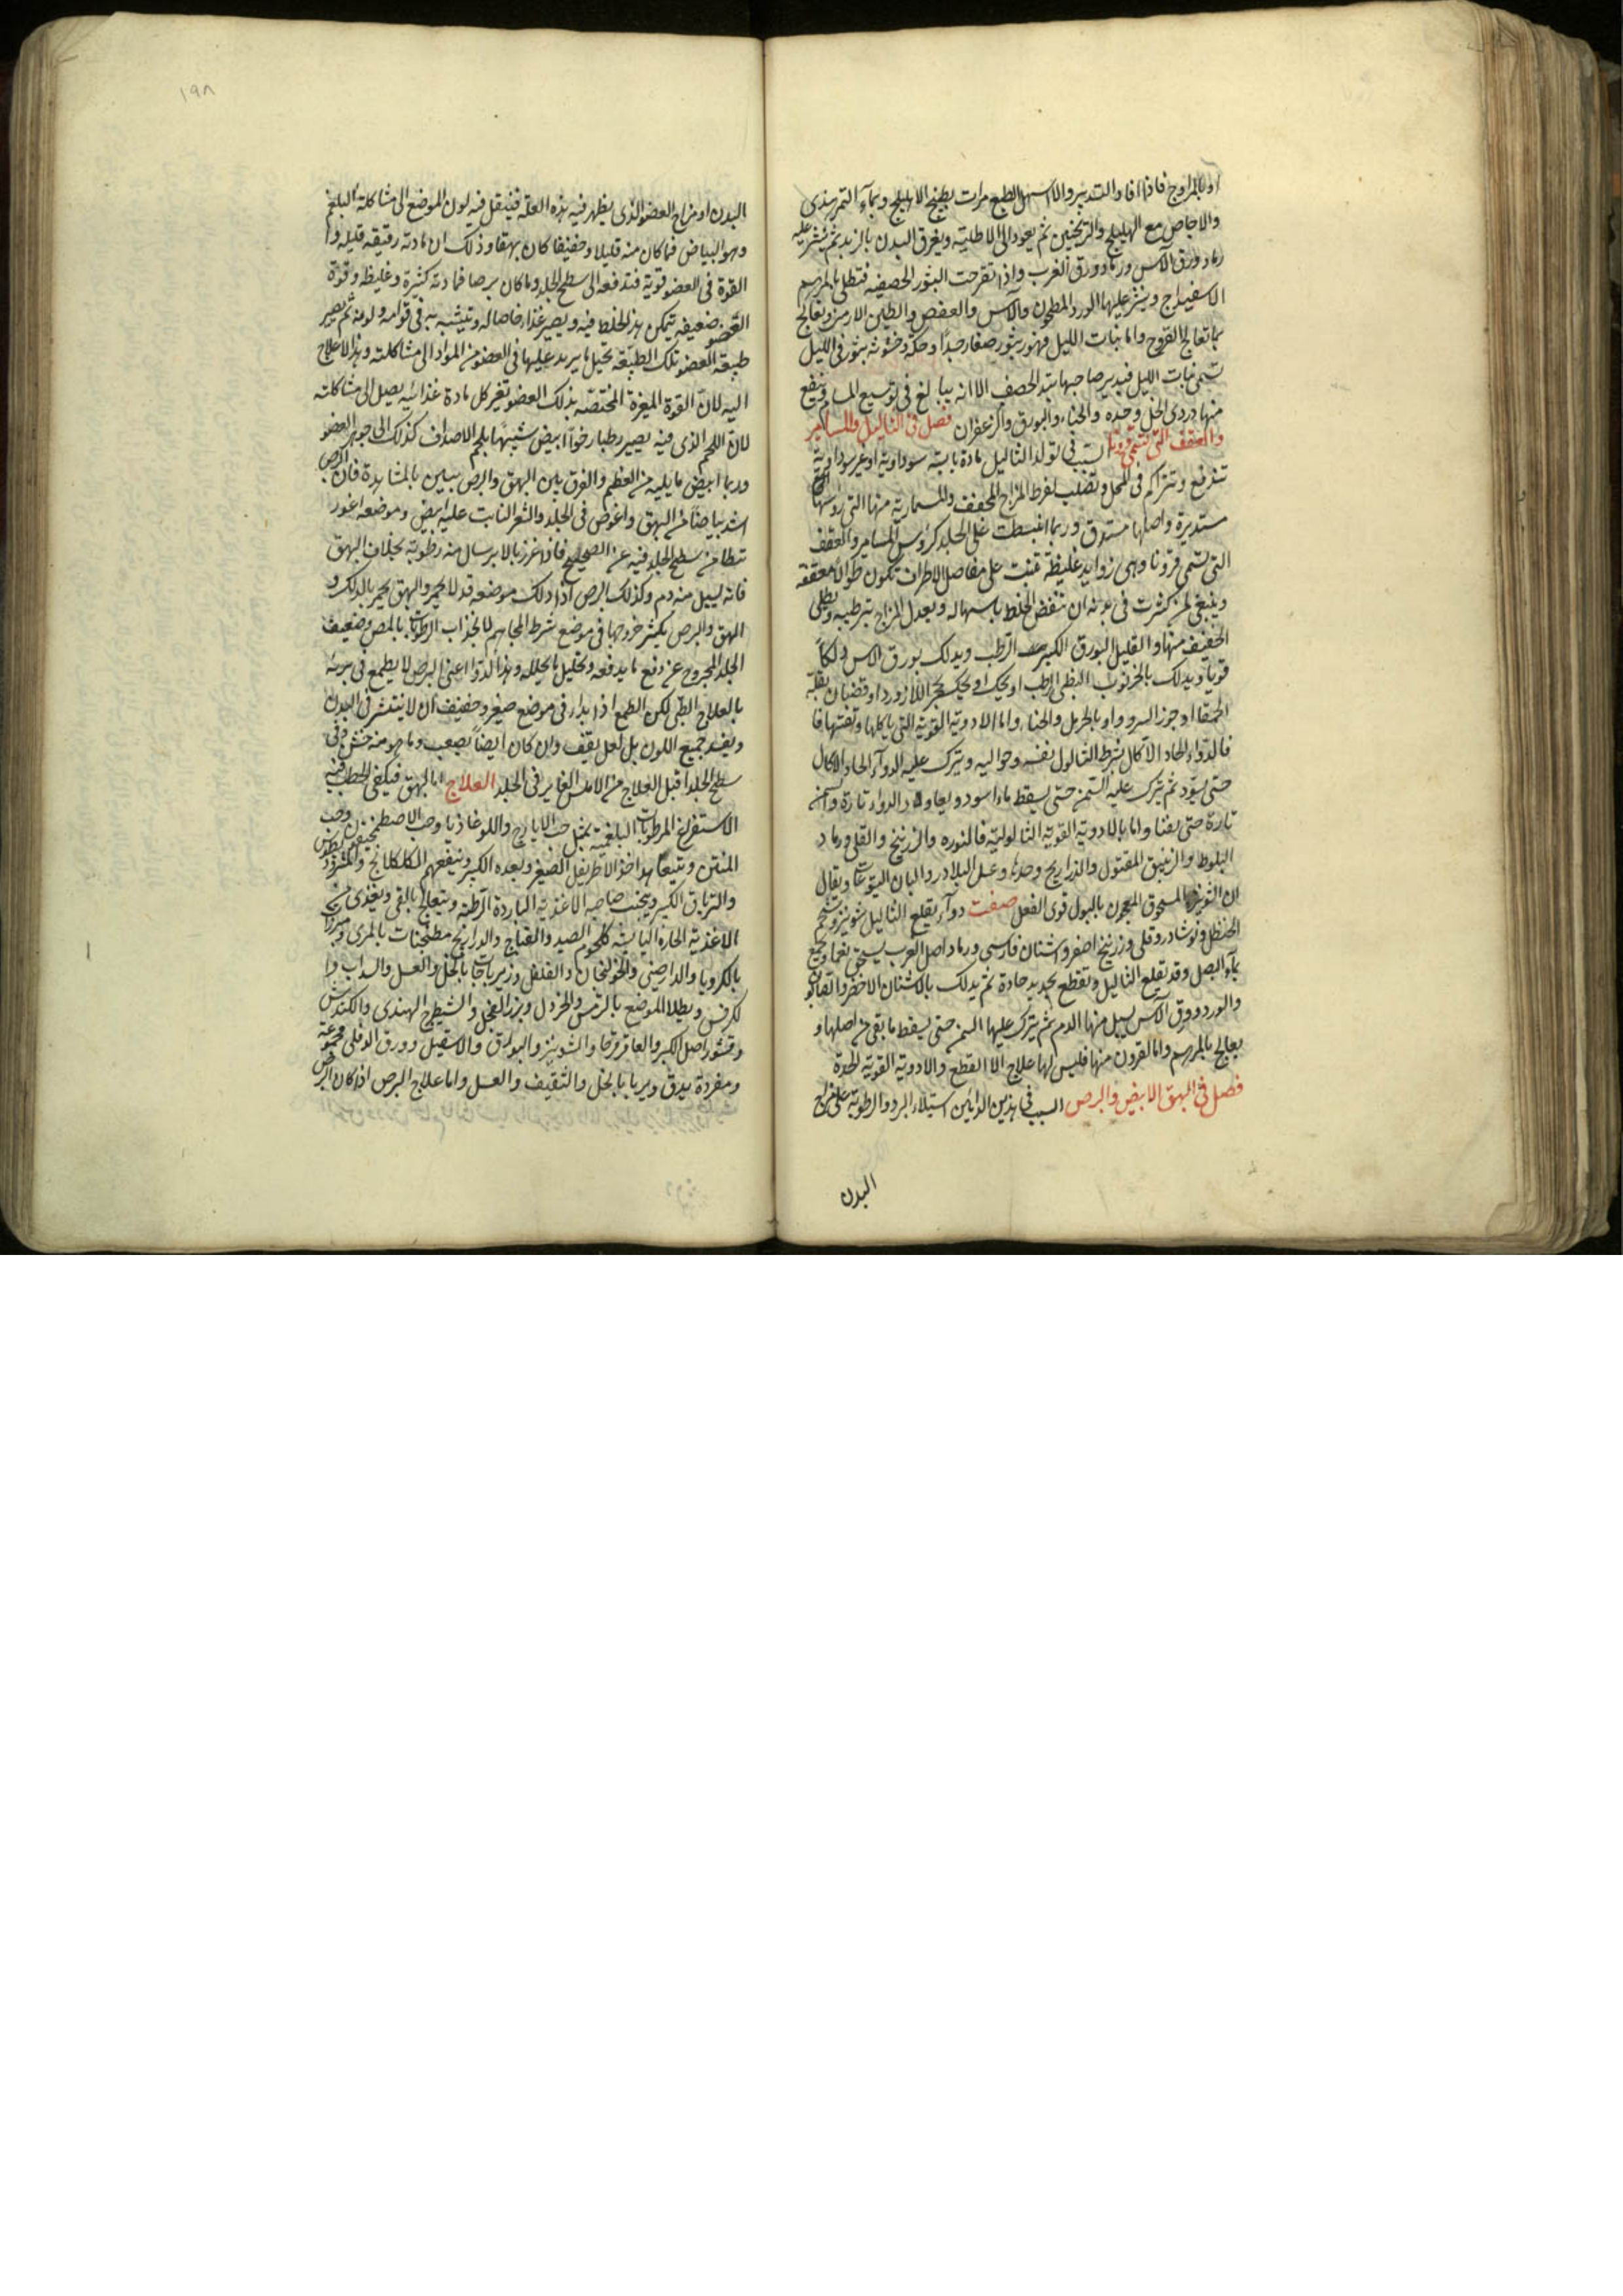 او بالمراوح فاذا افاد التدبير والا اسهل الطبع مرات بطبيخ الاهليلج وبماء التمر هندى
والاجاص مع الهليلج والترنجبين ثم يعود الى الاطلية ويغرق البدن بالزبد ثم ينثر عليه
رماد ورق الآس ورماد ورق الغرب واذا تقرحت البثور الحصفيه فتطلى بمرهم
الاسفيداج وينثر عليها الورد المطحون والآس والعفص والطين الارمنى وتعالج
بما تعالج القروح واما بنات الليل فهو بثور صغار جدا وحكة وخشونة بثور فى الليل
تسمى بنات الليل فيدبر صاحبها بتدبير الحصف الا انه يبالغ فى توسيع المسام وينفع
منها دردى الخل وحده والحناء والبورق والزعفران فصل فى الثاليل والمسامير
والعقف التى تسمى قرونا السبب فى تولد الثاليل مادة يابسه سوداوية او غير سوداوية
تندفع وتتراكم فى المحل وتصلب لفرط المزاج المجفف والمسمارية منها التى روسها
مستديرة واصلها مستدق وربما انبسطت على الجلد كروس المسامير والعقف
التى تسمى قرونا وهى زوايد غليظة تنبت على مفاصل الاطراف تكون طوالا معقفة
وينبغى لمن كثرت فى بدنه ان تنفض الخلط باسهاله ويعدل المزاج بترطيبه ويطلى
الخفيف منها والقليل البورق الكبير الرطب ويدلك بورق الآس دلكا
قويا ويدلك بالخرنوب النبطى الرطب او يحك بحجر اللازورد او قضبان بقلة
الحمقا او جوز السرو او بالحرمل والحناء واما الادوية القوية التى تاكلها وتفتتها فا
فالدواء الحاد الاكال بشرط الثالول نفسه وحواليه ويترك عليه الدواء الحاد الاكال
حتى يسود ثم يترك عليه السمن حتى يسقط ما اسود ويعاود الدواء تارة والسمن
تارة حتى يفنا واما بالادوية القوية الثالولية فالنوره والزرنيخ والقلى ورماد
البلوط والزيبق المقتول والذراريح وحدها وعسل البلادر والبان اليتوعات ويقال
ان الشونيز المسحوق المعجون بالبول قوى الفعل صفت دواء يقلع الثاليل شونيز وشحم
الحنظل ونوشادر وقلى وزرنيخ اصفر واشنان فارسى ورماد اصل الغرب يسحق نعما ويجمع
بماء البصل وقد تقلع الثاليل وتقطع بحديد حادة ثم يدلك بالاشنان الاخضر
والورد وورق الآس ليسيل منها الدم ثم يترك عليها السمن حتى يسقط ما بقى من اصلها و
يعالج بالمرهم واما القرون منها فليس لها علاج الا القطع والادوية القوية الحدة
فصل فى البهق الابيض والبرص السبب فى هذين الدائين استيلاء البرد والرطوبة على مزاج
البدن
١٩٨
البدن او مزاج العضو الذى يظهر فيه هذه العلة فينتقل فيه لون الموضع الى مشاكلة البلغم
وهو البياض فما كان منه قليلا وخفيفا كان بهقا وذلك ان مادته رقيقه قليله وا
القوة فى العضو قوية فتدفعه الى سطح الجلد وما كان برصا فمادته كثيرة وغليظه وقوة
العضو ضعيفه يتمكن هذا الخلط فيه ويصير غذاء خاصا له ويتشبه به فى قوامه ولونه ثم يصير
طبيعة العضو تلك الطبيعه تحيل ما يرد عليها فى العضو من المواد الى مشاكلته وهذا لا علاج
اليه لان القوة المغيرة المختصه بذلك العضو تغير كل مادة غذائيه يصل الى مشاكلته
لان اللحم الذى فيه يصير رطبا رخوا ابيض شبيها بلحم الاصداف كذلك الى جوهر العضو
وربما ابيض ما يليه من العظم والفرق بين البهق والبرص يتبين بالمشاهدة فان البرص
اشد بياضا من البهق واغوص فى الجلد والشعر النابت عليه ابيض وموضعه اغور
تنطا من سطح الجلد فيه عن الصحيح فاذا غرز بالابر سال منه رطوبة بخلاف البهق
فانه يسيل منه دم وكذلك البرص اذا دلك موضعه قد لا يحمر والبهق يحمر بالدلك و
البهق والبرص يكثر خروجها فى موضع شرط المحاجم لانجذاب الرطوبات بالمص وضعيف
الجلد المجروح عن دفع ما يدفعه وتحليل ما يحلله وهذا الدوا اعنى البرص لا يطمع فى برئه
بالعلاج الطبى لكن الطمع اذا بدا فى موضع صغير وخفيف ان لا ينتشر فى البدن
ويفسد جميع اللون بل لعل يقف وان كان ايضا يصعب وما هو منه خشن فى
سطح الجلد اقبل للعلاج من الاملس الغاير فى الجلد العلاج اما البهق فيكفى الخطب فيه
الاستفراغ المرطوبات البلغمية بمثل حب الايارج واللوغاذيا وحب الاصطمخيقون وحب
المنتن ويتبعها بهذا اخذ الاطريفل الصغير وبعده الكبير وينفعهم الكلكلانج والمثرود
والترياق الكبير ويجنب صاحبه الاغذية الباردة الرطبة ويتعالج بالقى ويغذى
الاغذية الحارة اليابسه كلحوم الصيد والقباج والدراريج مطجنات بالمرى
بالكرويا والدارصينى والخولنجان والفلفل وزيرباجات بالخل والعسل والسداب وا
لكرفس ويطلا الموضع بالترمس والخردل وبزر الفجل والشيطرج الهندى والكندش
وقشور اصل الكبر والعاقرقرحا والشونيز والبورق والاشقيل وورق الدفلى مجموعة
ومفردة يدق ويربا بالخل والثقيف والعسل واما علاج البرص اذا كان البرص